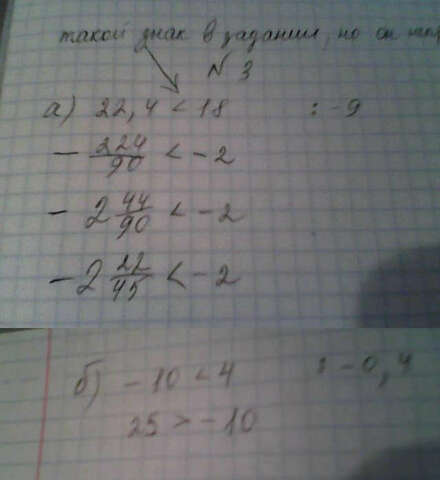 такой знак в задании, но он
N 3
а) 22,4 < 18 : -9
- 224/90 < -2
- 2 44/90 < -2
- 2 22/45 < -2
б) -10 < 4 : -0,4
25 > -10